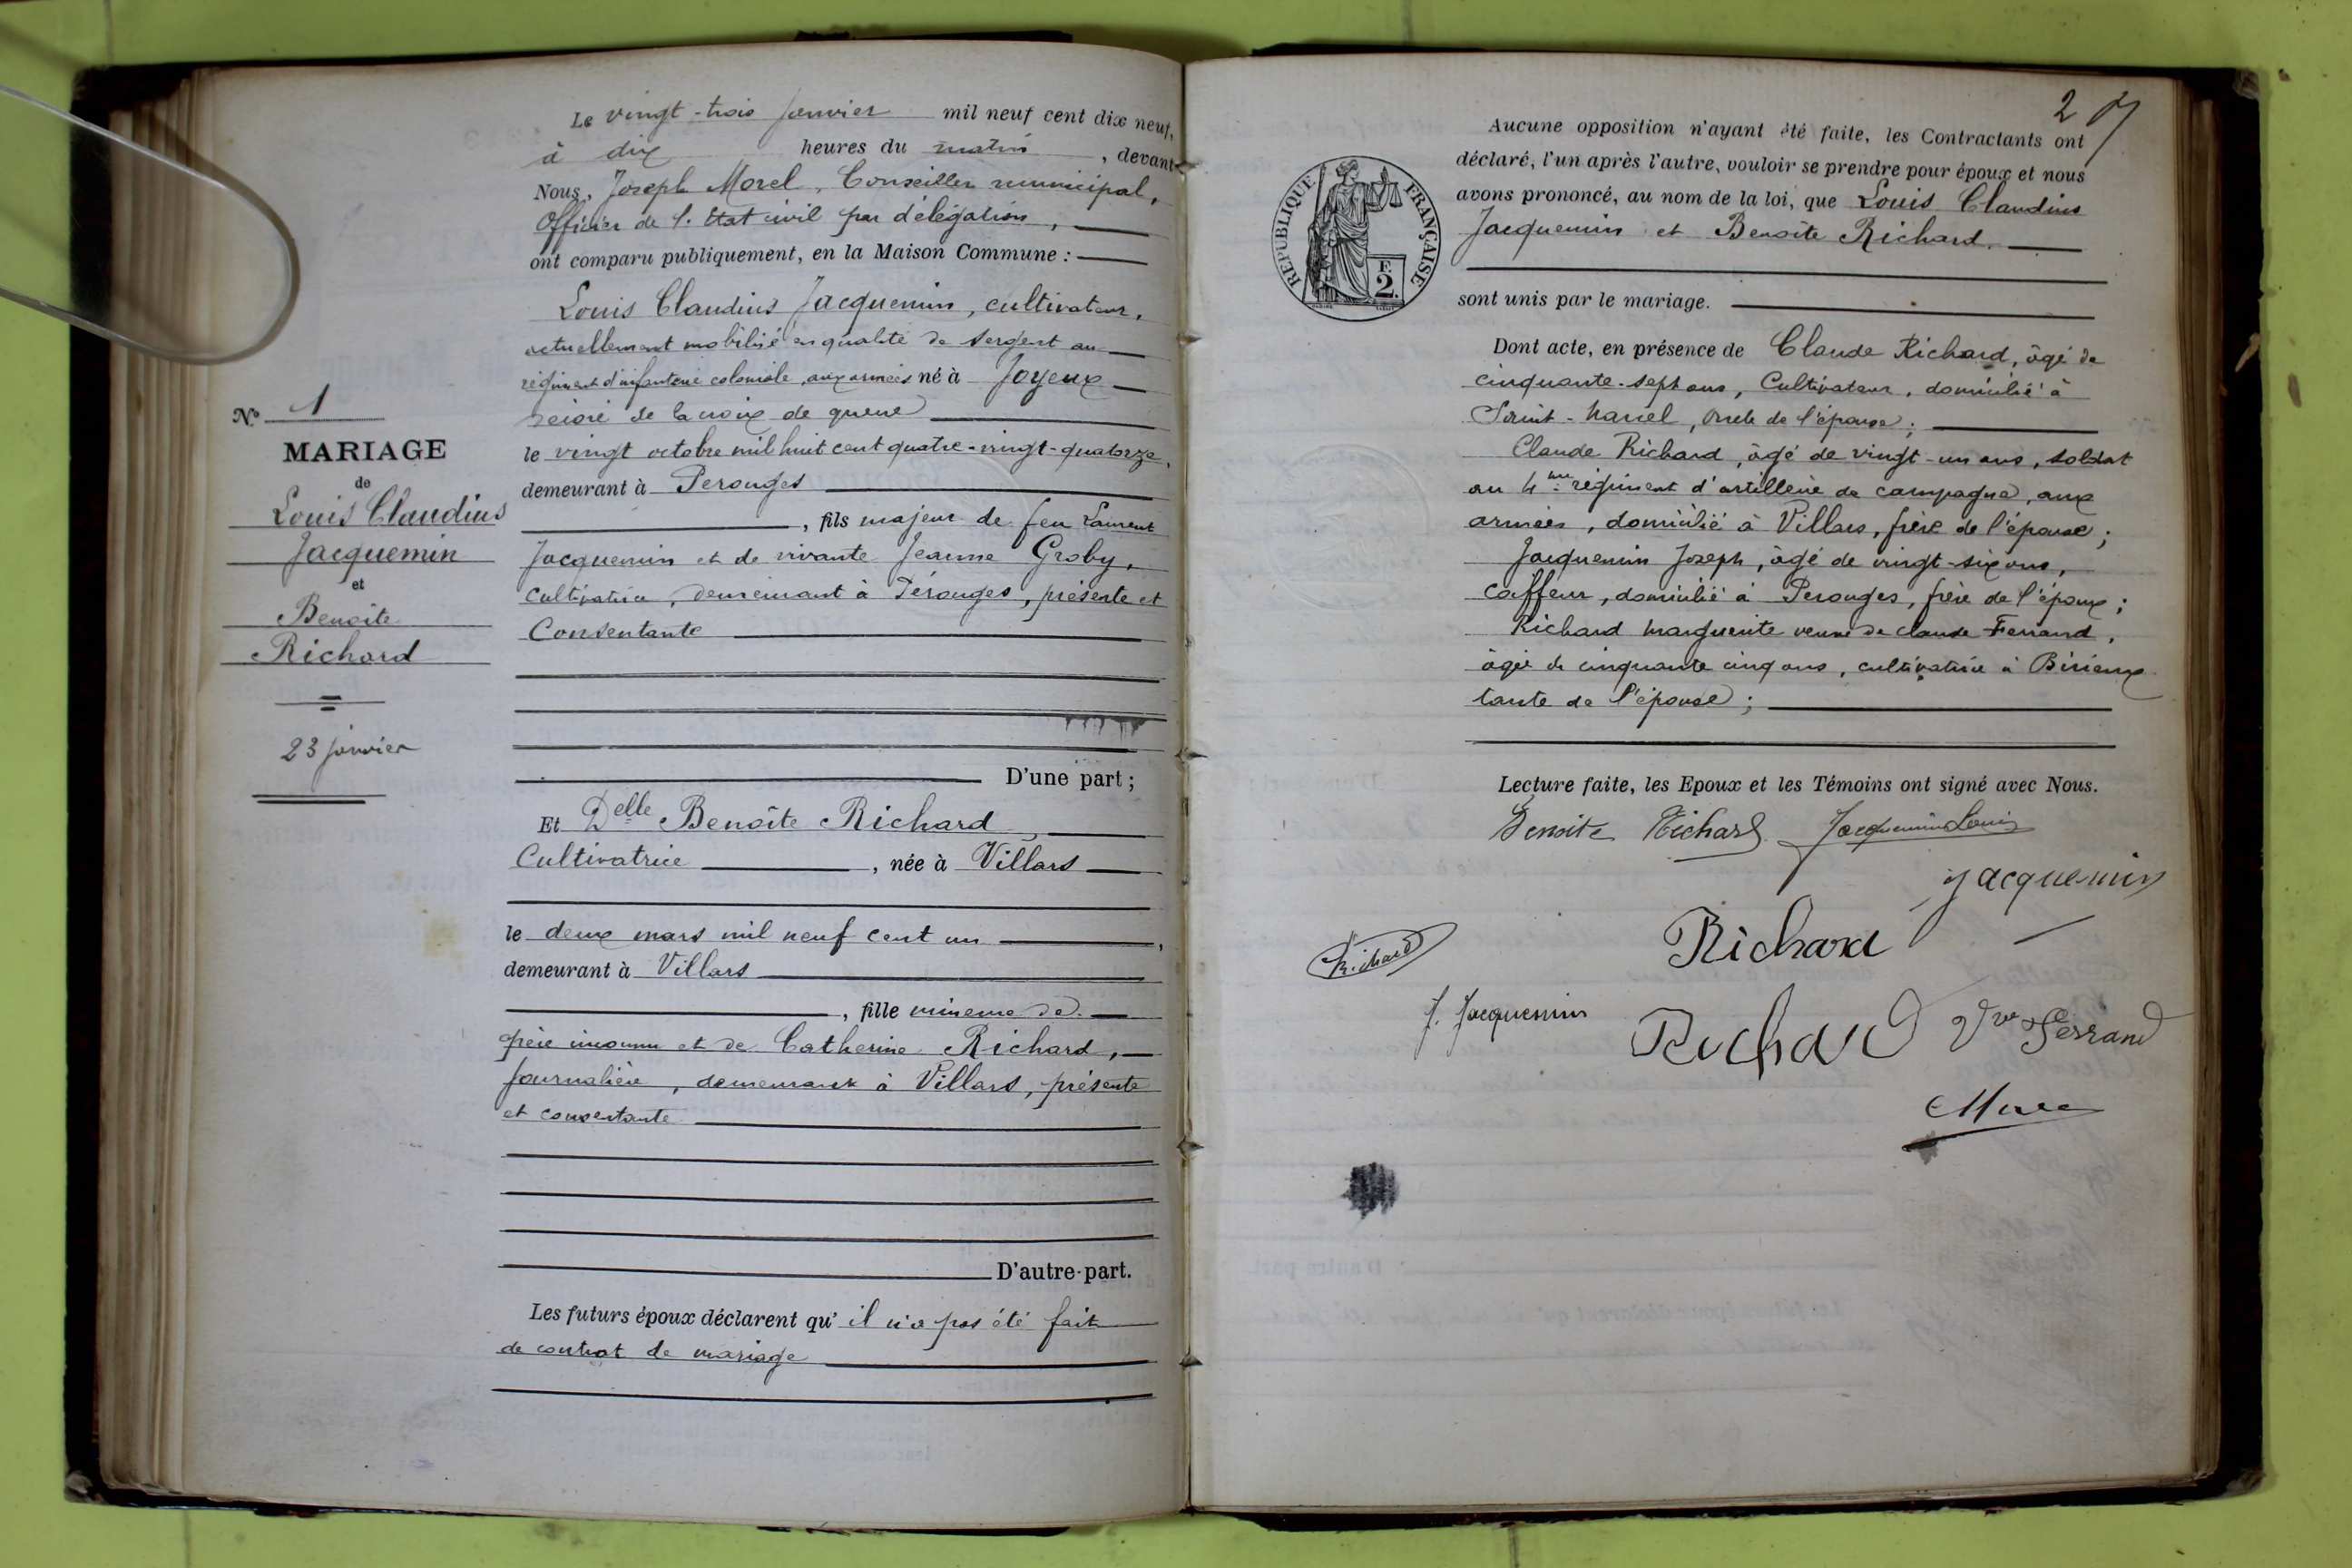 Le vingt-trois janvier mil neuf cent dix neuf,
à dix heures du matin, devant
Nous, Joseph Morel, Conseiller municipal,
Officier de l'Etat civil par délégation,
ont comparu publiquement, en la Maison Commune :
Louis Claudius Jacquemin, cultivateur,
actuellement mobilisé en qualité de sergent au
régiment d'infanterie coloniale aux armées né à Joyeux
de la croix de guerre
le vingt octobre mil huit cent quatre-vingt-quatorze,
demeurant à Perouges
, fils majeur de feu Laurent
Jacquemin et de vivante Jeanne Groby,
cultivatrice, demeurant à Pérouges, présente et
Consentante
D'une part ;
N° 1
MARIAGE
de
Louis Claudius
Jacquemin
et
Benoîte
Richard
23 janvier
Et Delle Benoîte Richard,
Cultivatrice, née à Villars
le deux mars mil neuf cent un,
demeurant à Villars
, fille mineure de
père inconnu et de Catherine Richard,
Journalière, demeurant à Villars, présente
et consentante
D'autre part.
Les futurs époux déclarent qu'il n'a pas été fait
de contrat de mariage
2
Aucune opposition n'ayant été faite, les Contractants ont
déclaré, l'un après l'autre, vouloir se prendre pour époux et nous
avons prononcé, au nom de la loi, que Louis Claudius
Jacquemin et Benoîte Richard
sont unis par le mariage.
REPUBLIQUE FRANÇAISE
F.
2.
Dont acte, en présence de Claude Richard, âgé de
cinquante-sept ans, Cultivateur, domicilié à
Saint-Marcel, oncle de l'épouse ;
Claude Richard, âgé de vingt-un ans, soldat
au 4me régiment d'artillerie de campagne, aux
armées, domicilié à Villars, frère de l'épouse ;
Jacquemin Joseph, âgé de vingt-six ans,
coiffeur, domicilié à Perouges, frère de l'époux ;
Richard Marguerite veuve de Claude Ferrand,
âgée de cinquante cinq ans, cultivatrice à Birieux
tante de l'épouse ;
Lecture faite, les Epoux et les Témoins ont signé avec Nous.
Benoite Richard Jacquemin Louis
Jacquemin
Richard Richard
J. Jacquemin Richard Vve Ferrand